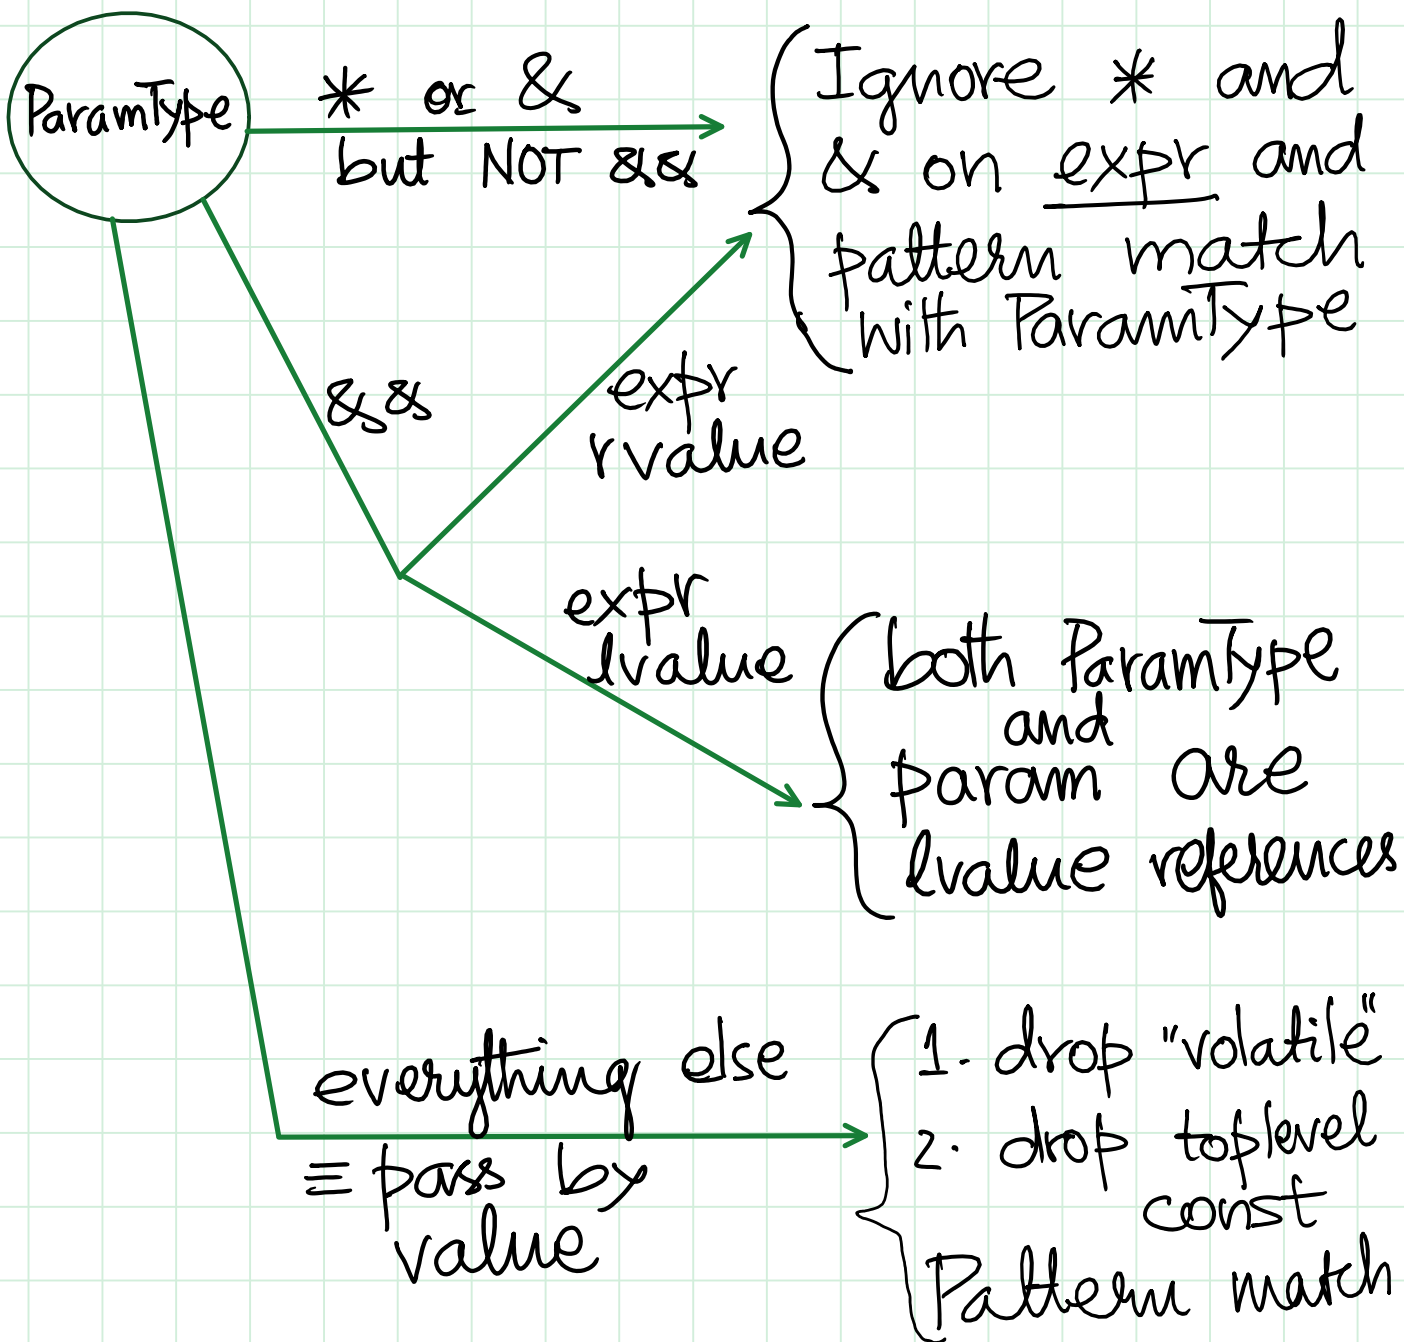 ParamType
* or &
but NOT &&
Ignore * and
& on expr and
pattern match
with ParamType
&&
expr
rvalue
expr
lvalue
both ParamType
and
param are
lvalue references
everything else
≡ pass by
value
1. drop "volatile"
2. drop toplevel
const
Pattern match